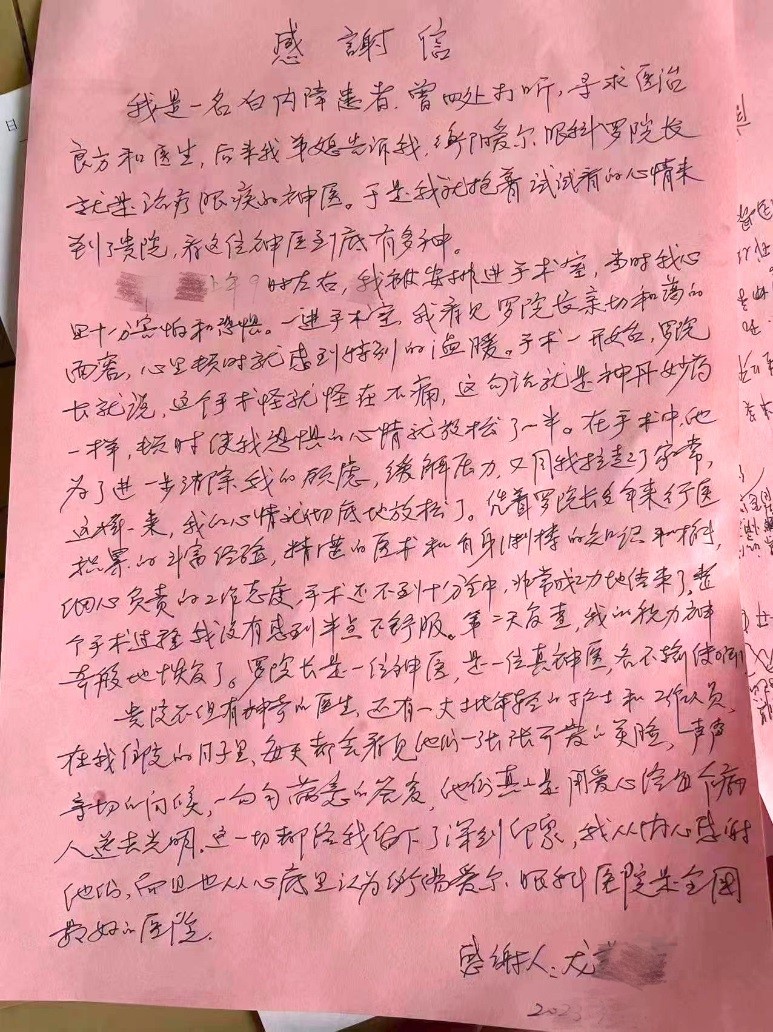 感謝信
我是一名白内障患者,曾四处打听,寻求医治
良方和医生,后来我弟媳告诉我,衡阳爱尔眼科罗院长
就是治疗眼疾的神医。于是我就抱着试试看的心情来
到了贵院,看这位神医到底有多神。
上午9时左右,我被安排进手术室,当时我心
里十分害怕和恐惧。一进手术室,我看见罗院长亲切和蔼的
面容,心里顿时就感到特别的温暖。手术一开始,罗院
长就说,这个手术怪就怪在不痛,这句话就是神丹妙药
一样,顿时使我恐惧的心情就放松了一半。在手术中,他
为了进一步消除我的顾虑,缓解压力,又同我拉起了家常,
这样一来,我的心情就彻底地放松了。凭着罗院长多年来行医
积累的丰富经验,精湛的医术和自身的知识和
细心负责的工作态度,手术还不到十分钟,非常成功地结束了,整
个手术过程我没有感到半点不舒服。第二天复查,我的视力神
奇般地恢复了。罗院长是一位神医,是一位真神医,名不
贵院不但有神奇的医生,还有一大批年轻的护士和工作人员,
在我住院的日子里,每天都会看见他们一张张可爱的笑脸,声声
亲切的问候,一句句满意的答复,他们真正是用爱心给每个病
人送去光明。这一切都给我留下了深刻印象,我从内心感谢
他们,而且也从心底里认为衡陽爱尔眼科医院是全国
最好的医院.
感谢人:龙
202